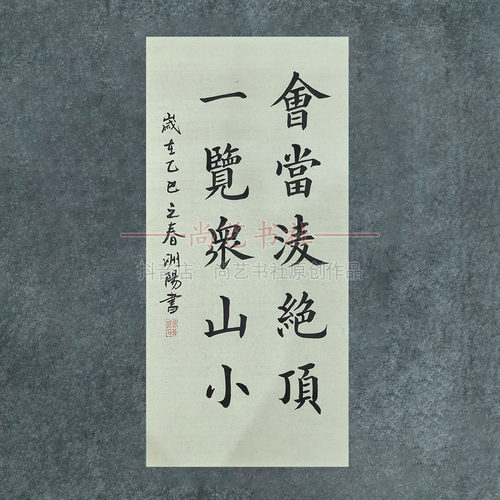 會當凌絕頂
一覽衆山小
歲在乙巳立春洲陽書
尚艺书社
抖音店：尚艺书社原创作品